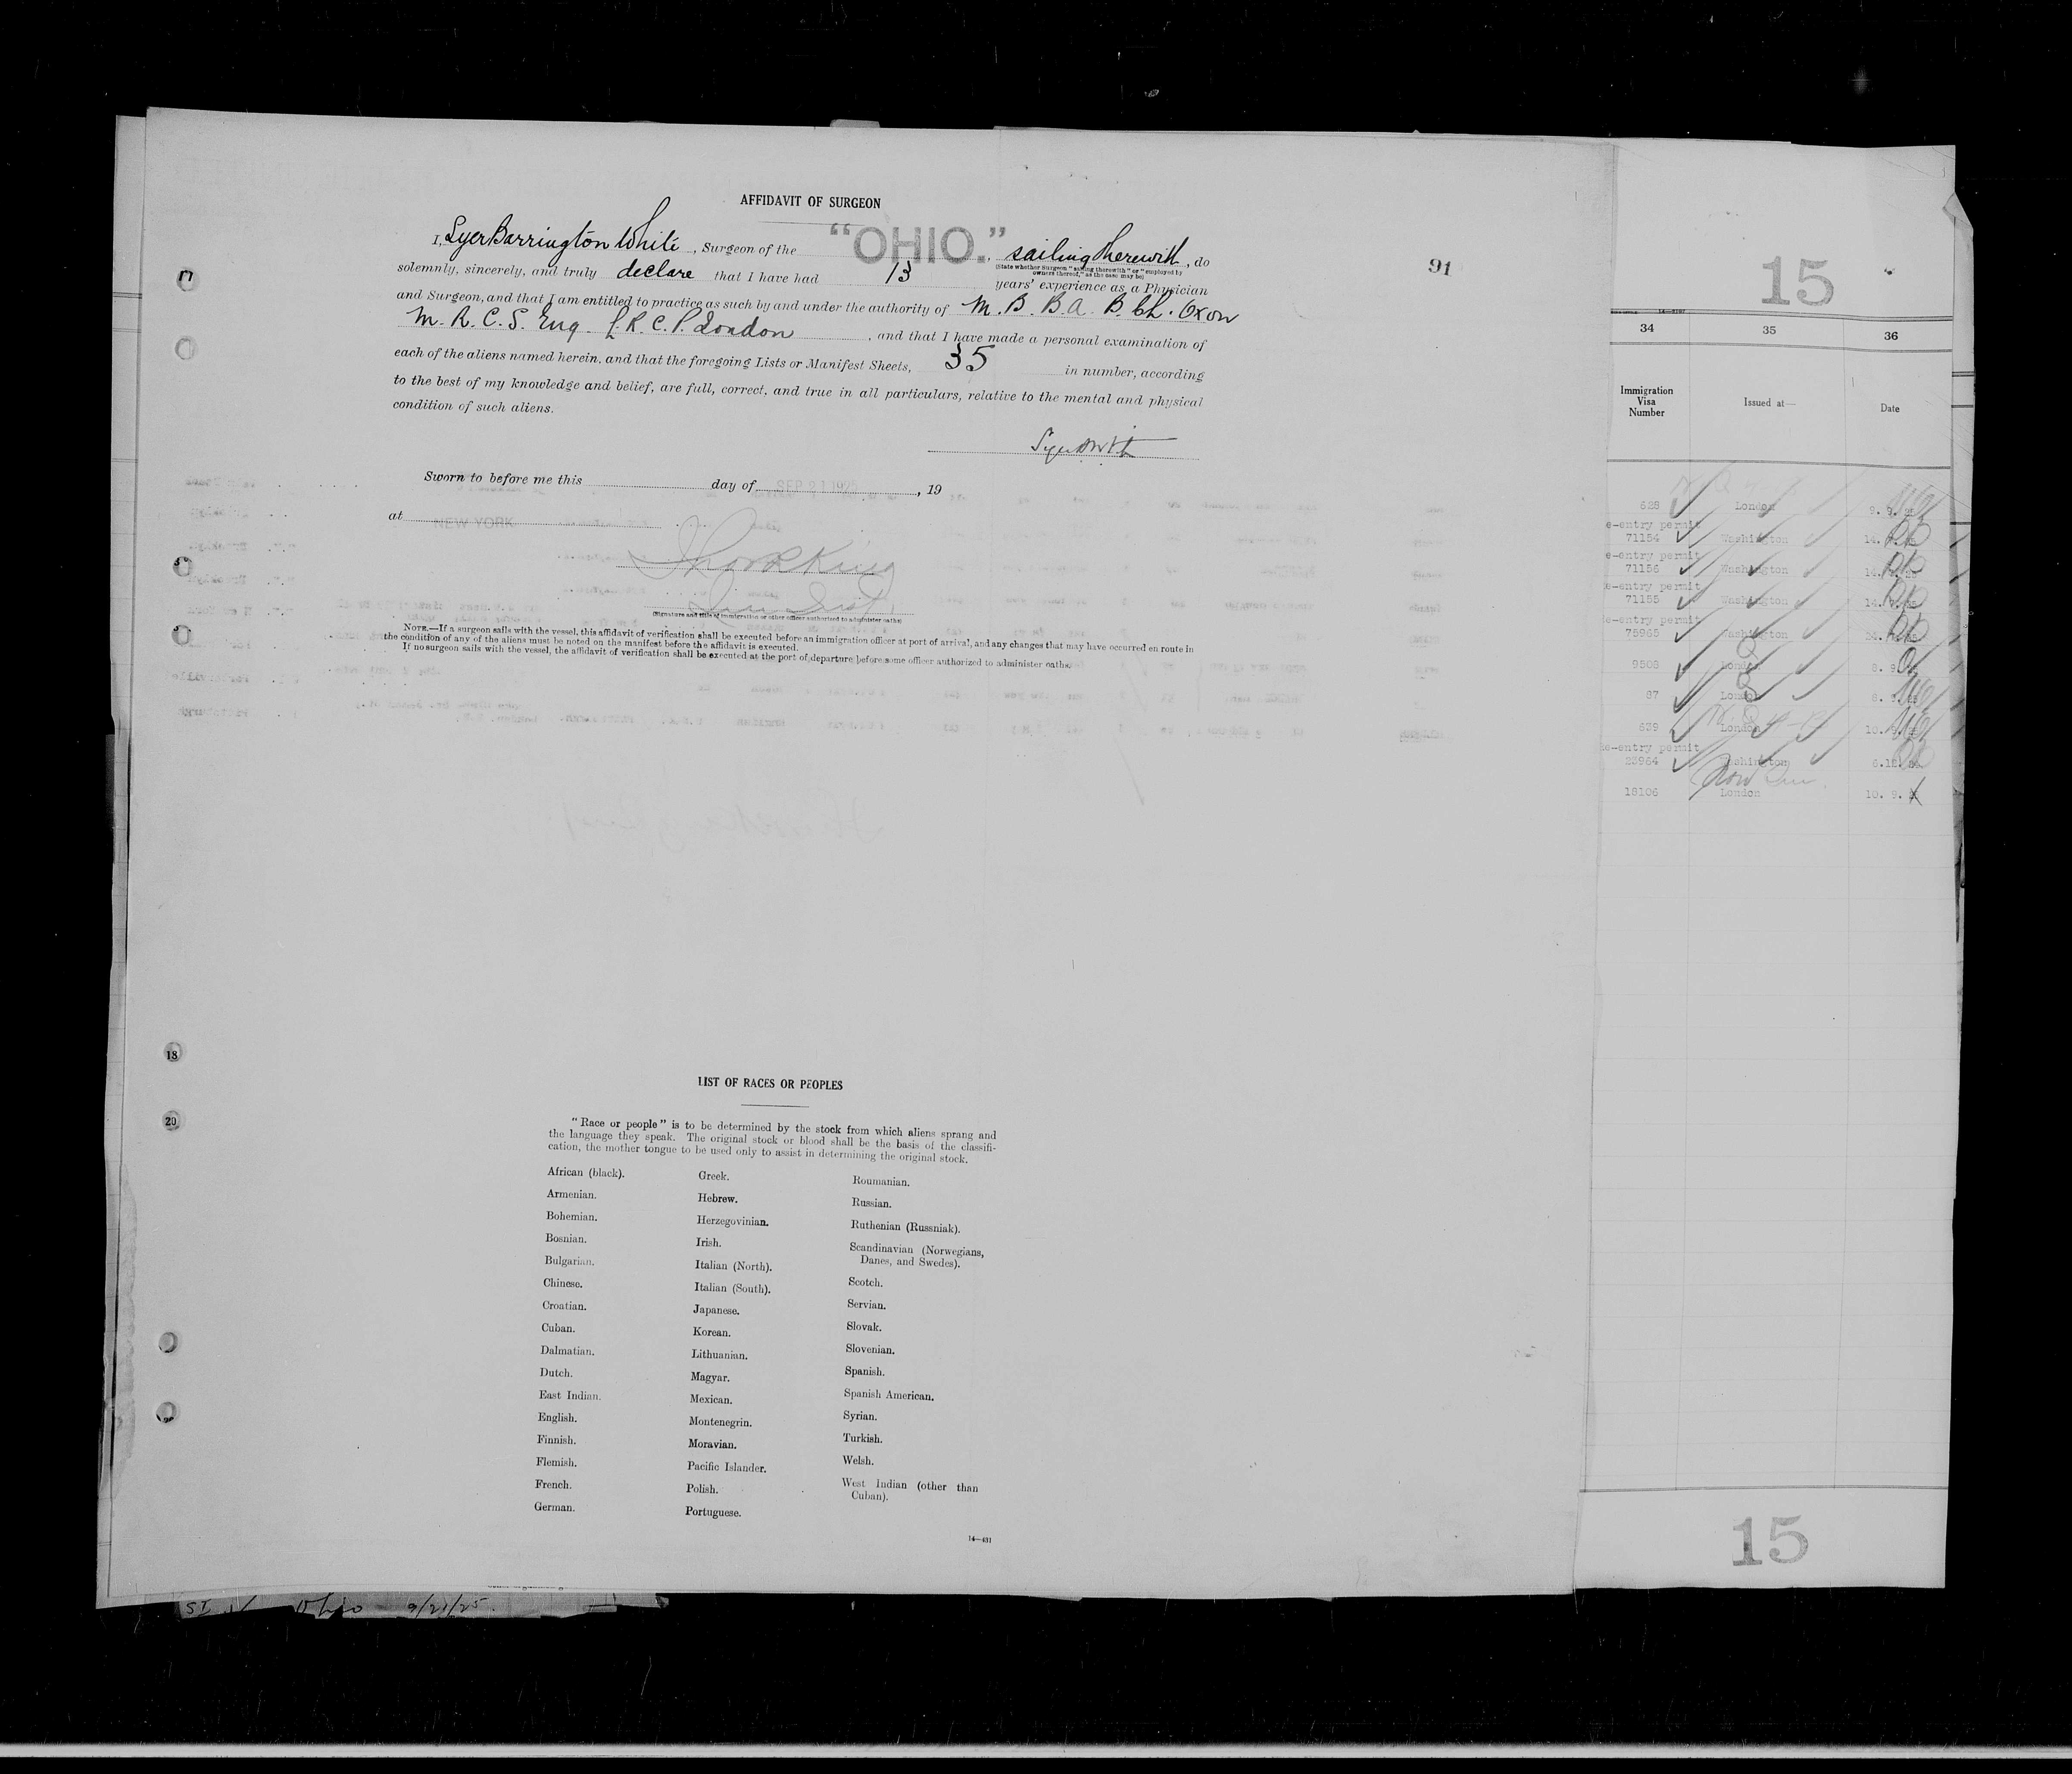 AFFIDAVIT OF SURGEON
I, Syer Barrington White, Surgeon of the "OHIO." sailing therewith, do
(State whether Surgeon "sailing therewith" or "employed by
owners thereof," as the case may be)
solemnly, sincerely, and truly declare that I have had 13 years' experience as a Physician
and Surgeon, and that I am entitled to practice as such by and under the authority of M.B. B.A. B.Ch. Oxon
M.R.C.S. Eng. L.R.C.P. London, and that I have made a personal examination of
each of the aliens named herein, and that the foregoing Lists or Manifest Sheets, 35 in number, according
to the best of my knowledge and belief, are full, correct, and true in all particulars, relative to the mental and physical
condition of such aliens.
Sworn to before me this day of SEP 21 1925, 19
at NEW YORK
(Signature and title of immigration or other officer authorized to administer oaths)
NOTE.—If a surgeon sails with the vessel, this affidavit of verification shall be executed before an immigration officer at port of arrival, and any changes that may have occurred en route in
the condition of any of the aliens must be noted on the manifest before the affidavit is executed.
If no surgeon sails with the vessel, the affidavit of verification shall be executed at the port of departure before some officer authorized to administer oaths.
91
17
18
20
LIST OF RACES OR PEOPLES
"Race or people" is to be determined by the stock from which aliens sprang and
the language they speak. The original stock or blood shall be the basis of the classifi-
cation, the mother tongue to be used only to assist in determining the original stock.
African (black).
Armenian.
Bohemian.
Bosnian.
Bulgarian.
Chinese.
Croatian.
Cuban.
Dalmatian.
Dutch.
East Indian.
English.
Finnish.
Flemish.
French.
German.
Greek.
Hebrew.
Herzegovinian.
Irish.
Italian (North).
Italian (South).
Japanese.
Korean.
Lithuanian.
Magyar.
Mexican.
Montenegrin.
Moravian.
Pacific Islander.
Polish.
Portuguese.
Roumanian.
Russian.
Ruthenian (Russniak).
Scandinavian (Norwegians,
Danes, and Swedes).
Scotch.
Servian.
Slovak.
Slovenian.
Spanish.
Spanish American.
Syrian.
Turkish.
Welsh.
West Indian (other than
Cuban).
14—431
Ohio 9/21/25.
15
34 35 36
Immigration
Visa
Number
Issued at—
Date
628 London 9. 9.
e-entry permit
71154 Washington 14.
e-entry permit
71156 Washington 14.
e-entry permit
71155 Washington 14.
e-entry permit
75965 Washington
9508 London 8. 9.
87 London 8. 9.
639 London 10. 9.
e-entry permit
23964 Washington 6.12.
18106 London 10. 9.
15